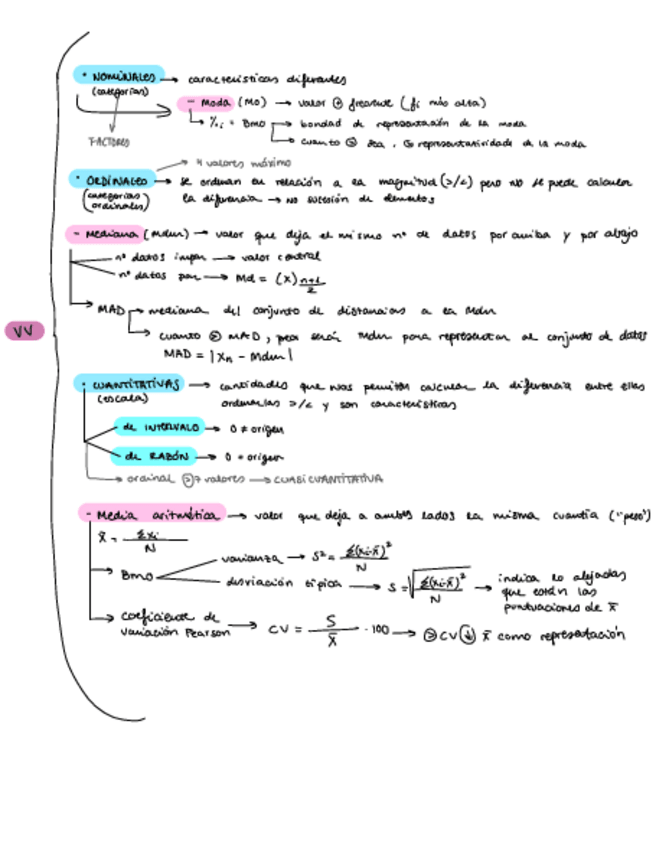 VV
• NOMINALES → características diferentes
(categorías)
FACTORES
- Moda (Mo) → valor ⊕ frecuente (fi más alta)
%i = Bmo → bondad de representación de la moda
→ cuanto ⊖ sea, ⊖ representatividad de la moda
→ 4 valores máximo
• ORDINALES → se ordenan en relación a la magnitud (>/<) pero no se puede calcular
(categorías ordinales) la diferencia → no sucesión de elementos
- Mediana (Mdn) → valor que deja el mismo nº de datos por arriba y por abajo
nº datos impar → valor central
nº datos par → Md = (x) n+1/2
MAD → mediana del conjunto de distancias a la Mdn
→ cuanto ⊕ MAD, peor será Mdn para representar al conjunto de datos
MAD = |Xn - Mdn|
• CUANTITATIVAS → cantidades que nos permiten calcular la diferencia entre ellas
(escala) ordenarlas >/< y son características
de INTERVALO → 0 ≠ origen
de RAZÓN → 0 = origen
→ ordinal > 7 valores → CUASICUANTITATIVA
- Media aritmética → valor que deja a ambos lados la misma cuantía ("peso")
x̄ = Σxi / N
→ Bmo
varianza → S² = Σ(xi-x̄)² / N
desviación típica → S = √(Σ(xi-x̄)² / N) → indica lo alejadas
que están las
puntuaciones de x̄
→ coeficiente de
variación Pearson → CV = S / x̄ · 100 → ⊕ CV ↓ x̄ como representación